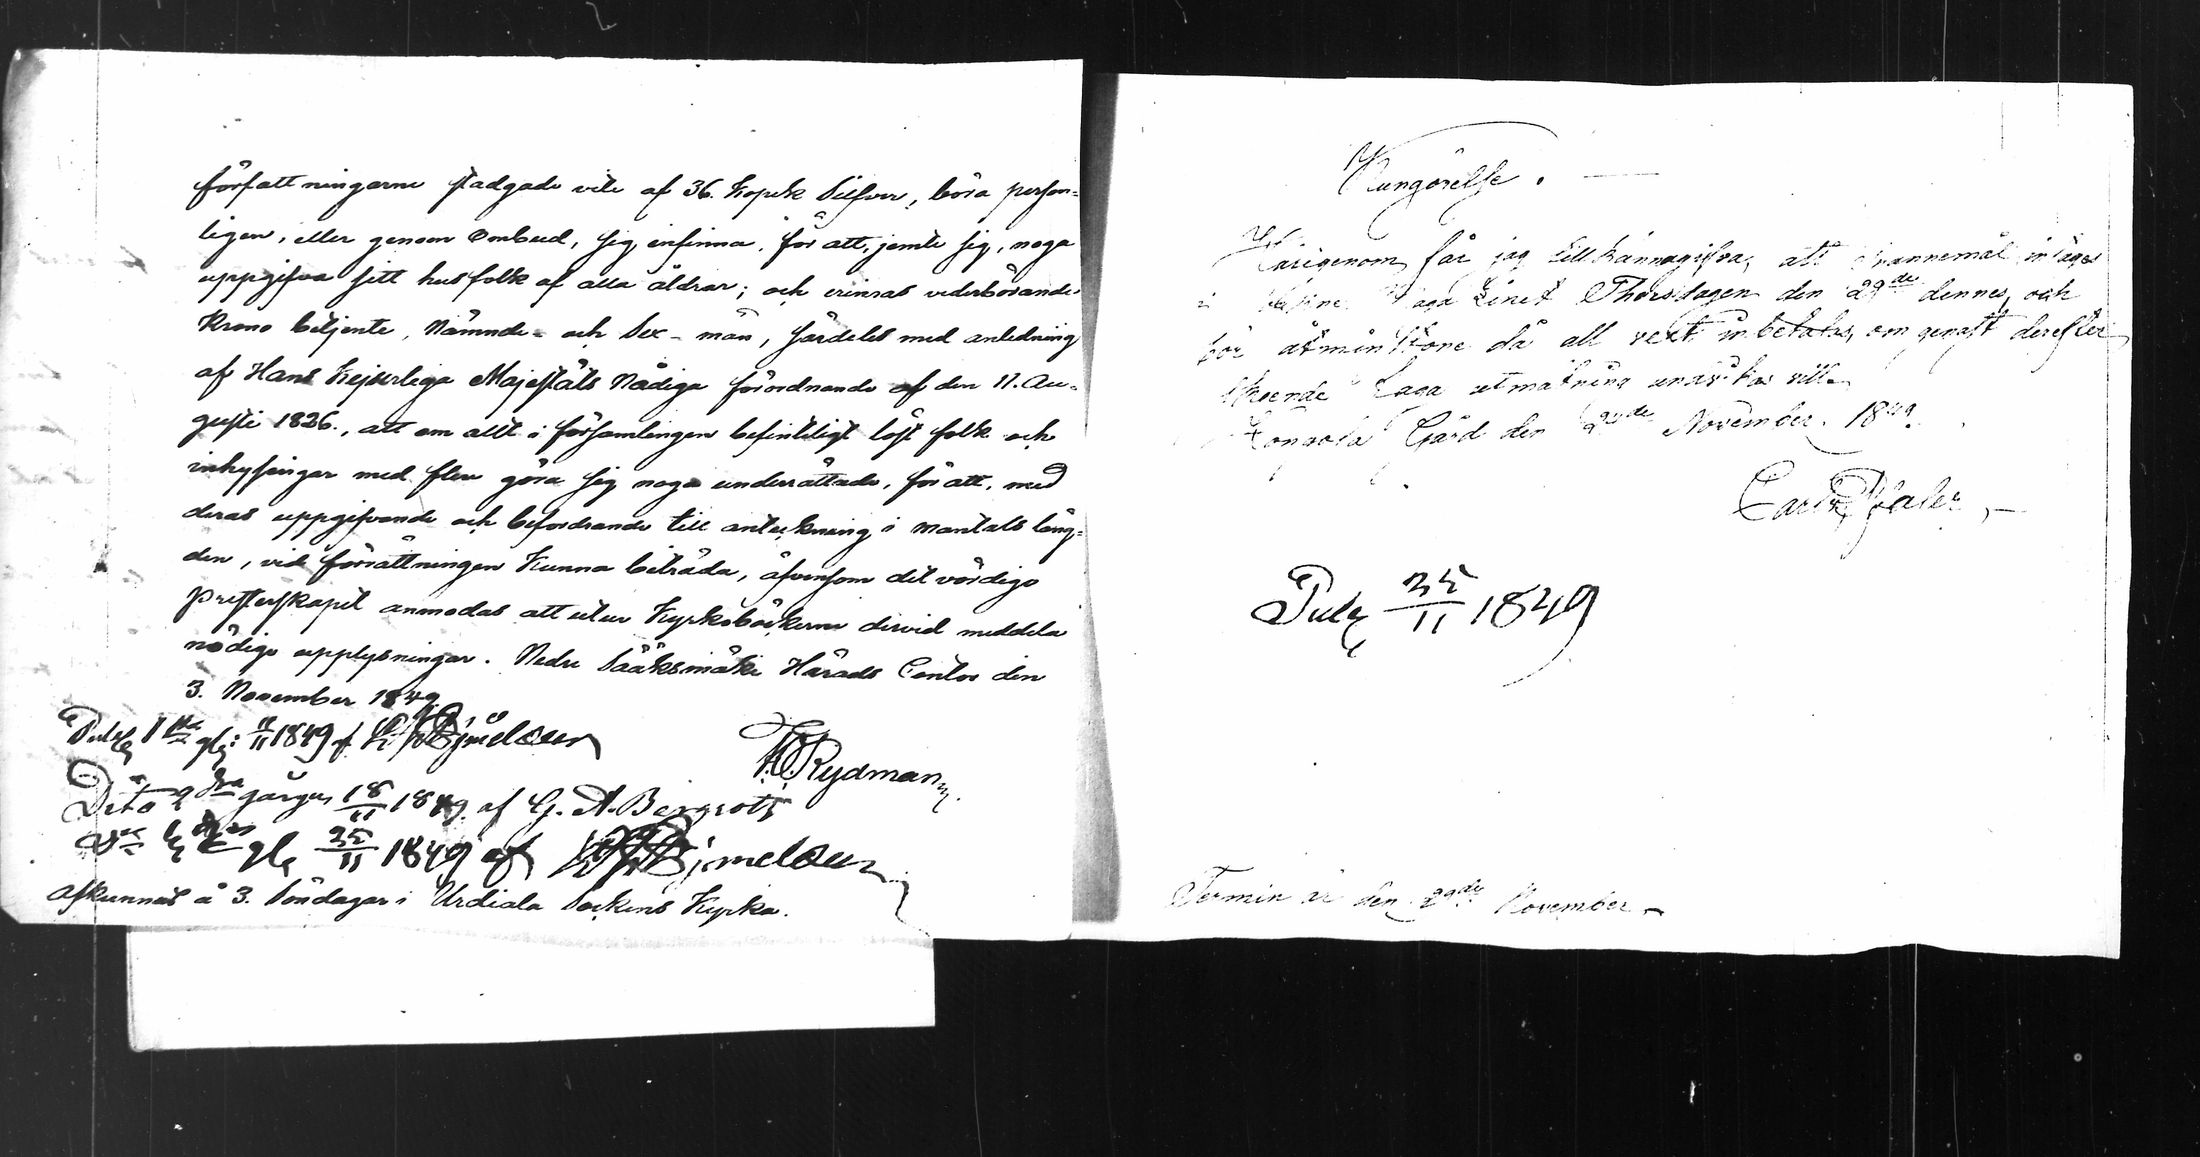 författningarne stadgade vite af 36. Kopek Silfver, böra person=
ligen, eller genom Ombud, sig infinna, för att, jemte sig, noga
uppgifva sitt husfolk af alla åldrar; och erinras vederbörande
Krono betjente, Nämnde- och Sex-män, särdeles med anledning
af Hans Kejserliga Majestäts Nådiga förordnande af den 11. Au=
gusti 1826., att om allt i församlingen befinteligt löst folk och
inhysingar med flere göra sig noga underrättade, för att, med
deras uppgifvande och befordrande till anteckning i mantals läng=
den, vid förrättningen kunna biträda, äfvensom det vördige
Presterskapet anmodas att utur Kyrkoböckerne dervid meddela
nödige upplysningar. Nedre Sääksmäki Härads Contor den
3. November 1849.
Rydman
11/11 1849 af
Dito 2dra gången 18/11 1849. af G. A. Bergroth
25/11 1849 af
Afkunnas å 3. Söndagar i Urdiala Sockens Kyrka.
Kungörelse.
Härigenom får jag tillkännagifva, att Spannemål intages
i Laga Thorsdagen den 29de dennes, och
bör åtminstone då all rest inbetalas, om genast derefter
skeende Laga utmätning undvikas vill.
Gård den November 1849.
Carl
25/11 1849
Termin är den 29de November